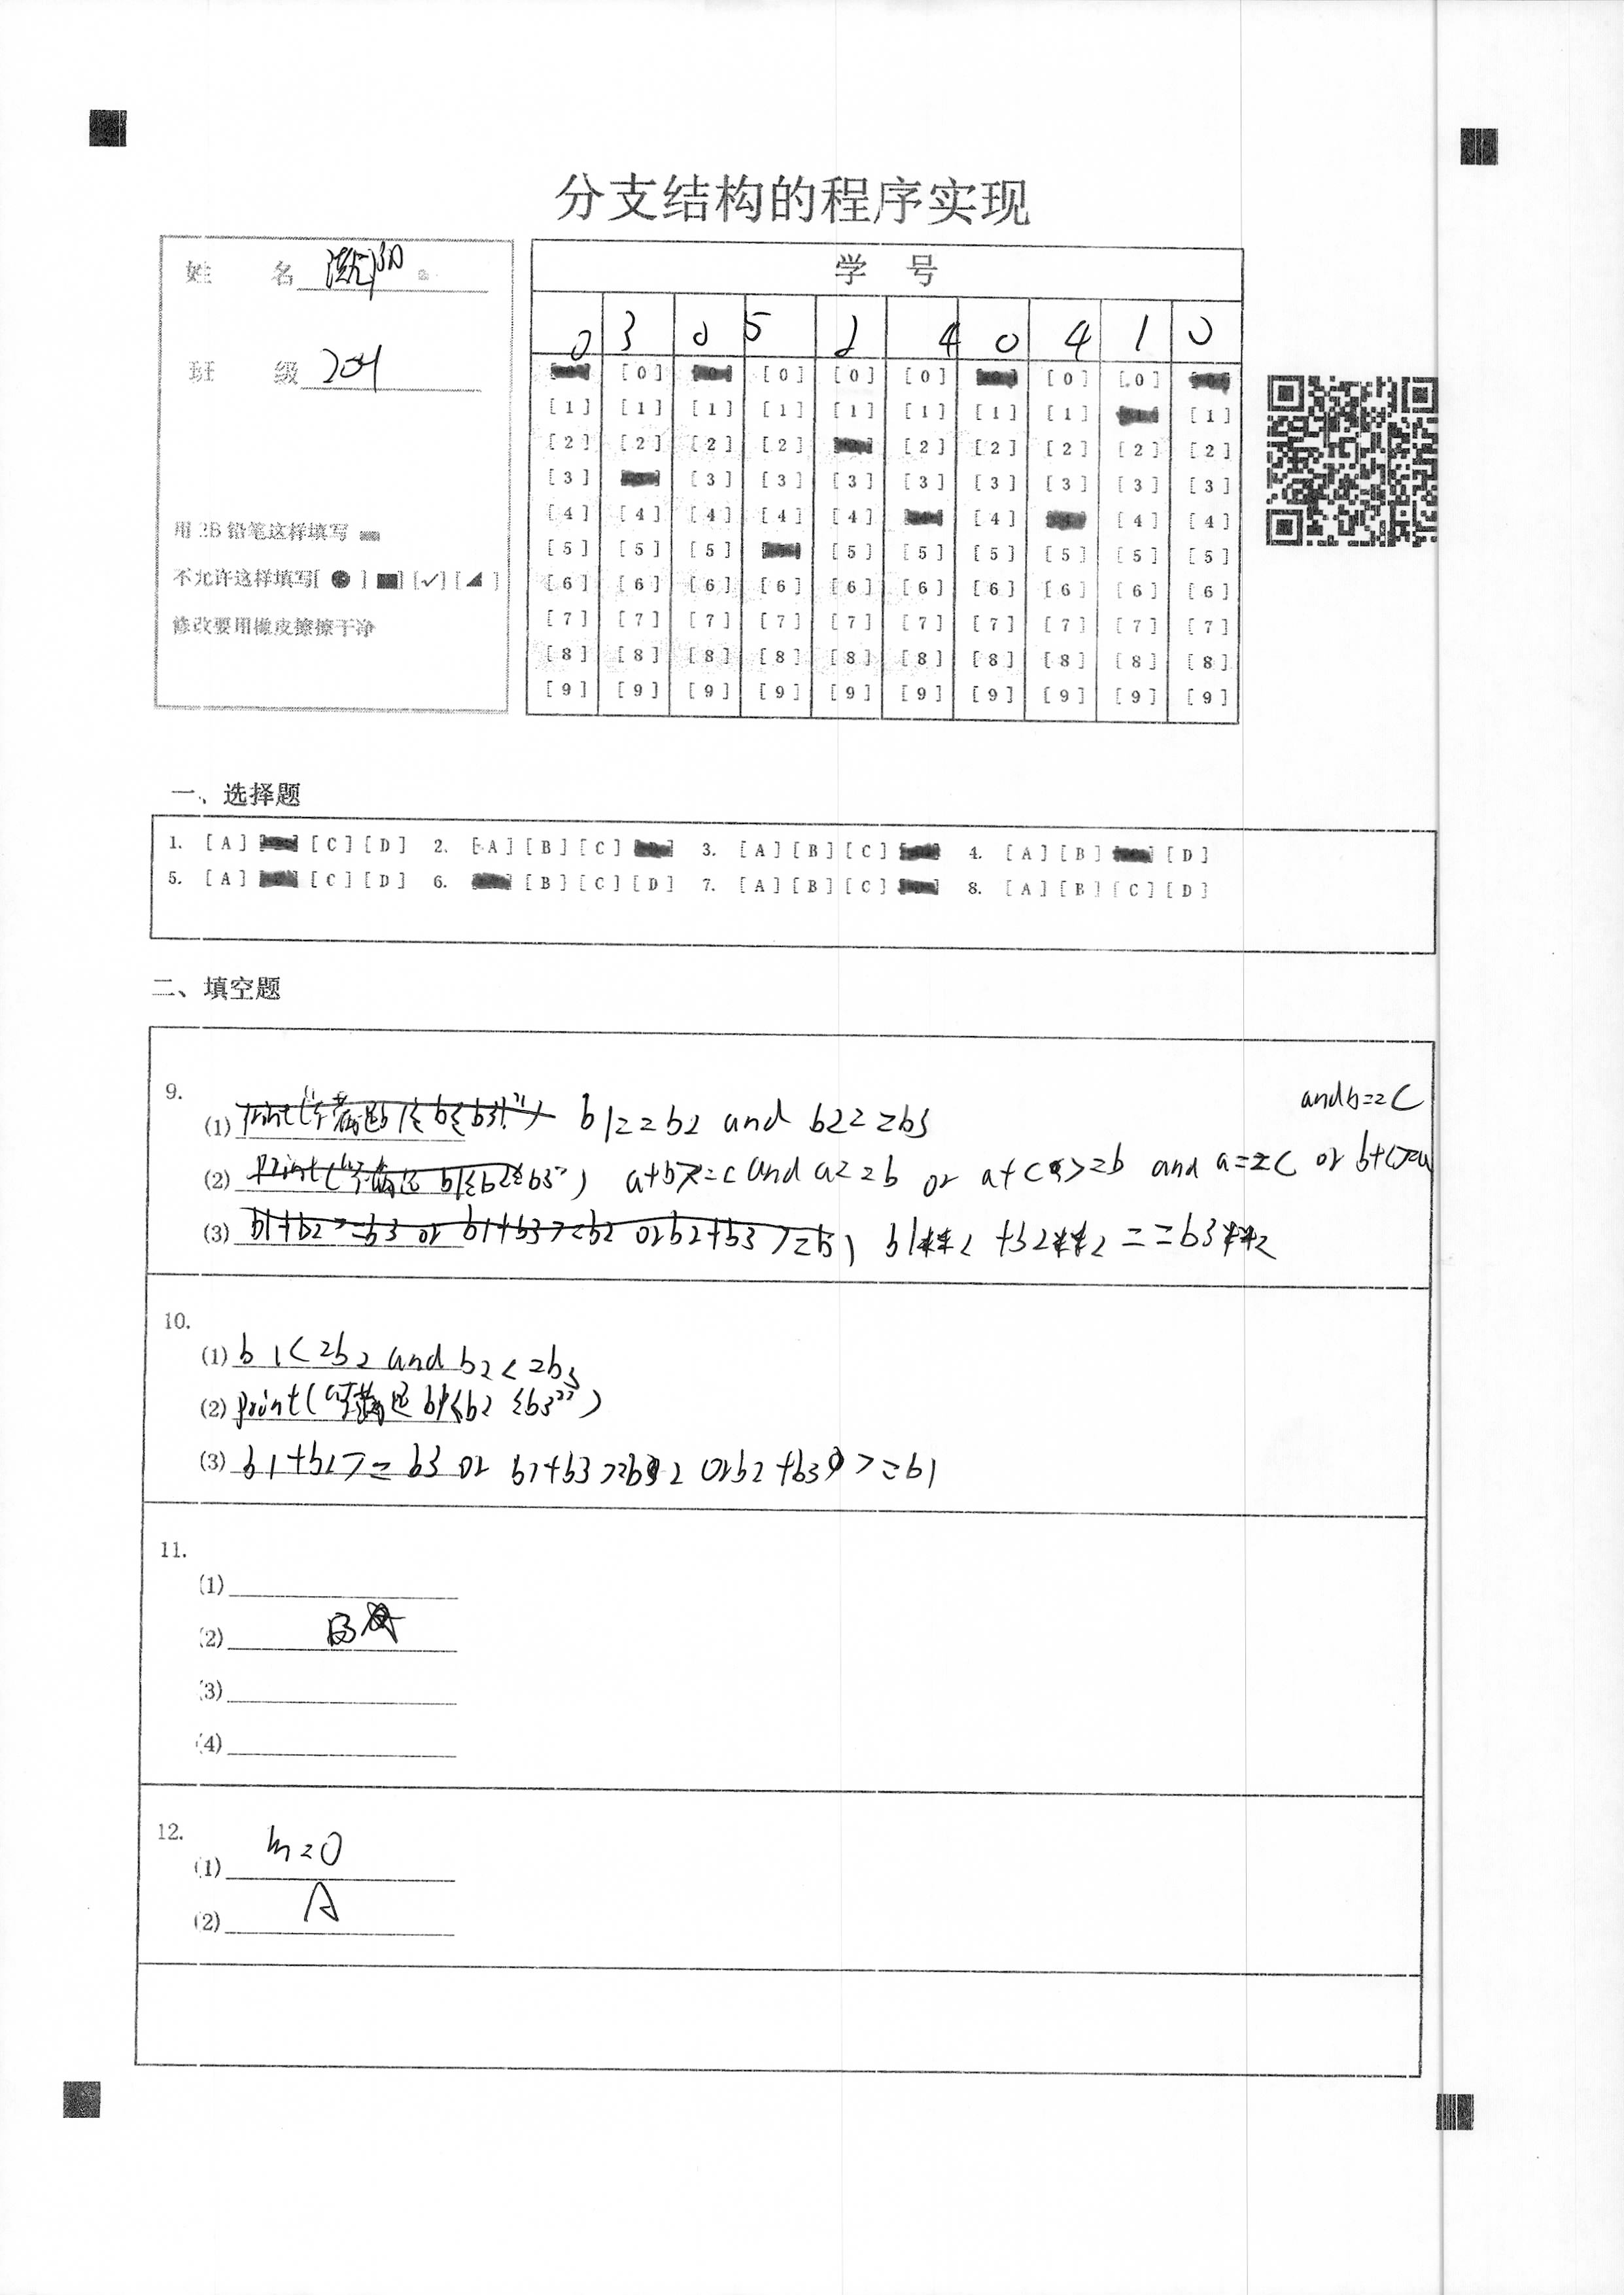 分支结构的程序实现
姓 名
班 级 204
用 2B 铅笔这样填写
不允许这样填写[ ● ] ■] [✓] [◢ ]
修改要用橡皮擦擦干净
学 号
0 3 0 5 2 4 0 4 1 0
[0] [0] [0] [0] [0]
[1] [1] [1] [1] [1] [1] [1] [1] [1]
[2] [2] [2] [2] [2] [2] [2] [2] [2]
[3] [3] [3] [3] [3] [3] [3] [3] [3]
[4] [4] [4] [4] [4] [4] [4] [4]
[5] [5] [5] [5] [5] [5] [5] [5] [5]
[6] [6] [6] [6] [6] [6] [6] [6] [6] [6]
[7] [7] [7] [7] [7] [7] [7] [7] [7] [7]
[8] [8] [8] [8] [8] [8] [8] [8] [8] [8]
[9] [9] [9] [9] [9] [9] [9] [9] [9] [9]
一、选择题
1. [A] [C] [D] 2. [A] [B] [C] 3. [A] [B] [C] 4. [A] [B] [D]
5. [A] [C] [D] 6. [B] [C] [D] 7. [A] [B] [C] 8. [A] [B] [C] [D]
二、填空题
9.
and b==C
(1) b1==b2 and b2==b3
(2) a+b>=c and a==b or a+c>=b and a==c or b+c>=a
(3) b1+b2>=b3 or b1+b3>=b2 or b2+b3>=b1 b1**2 +b2**2 ==b3**2
10.
(1) b1<=b2 and b2<=b3
(2) print("不满足b1≤b2≤b3")
(3) b1+b2>=b3 or b1+b3>=b2 or b2+b3>=b1
11.
(1)
(2) B
(3)
(4)
12.
(1) m=0
(2) A